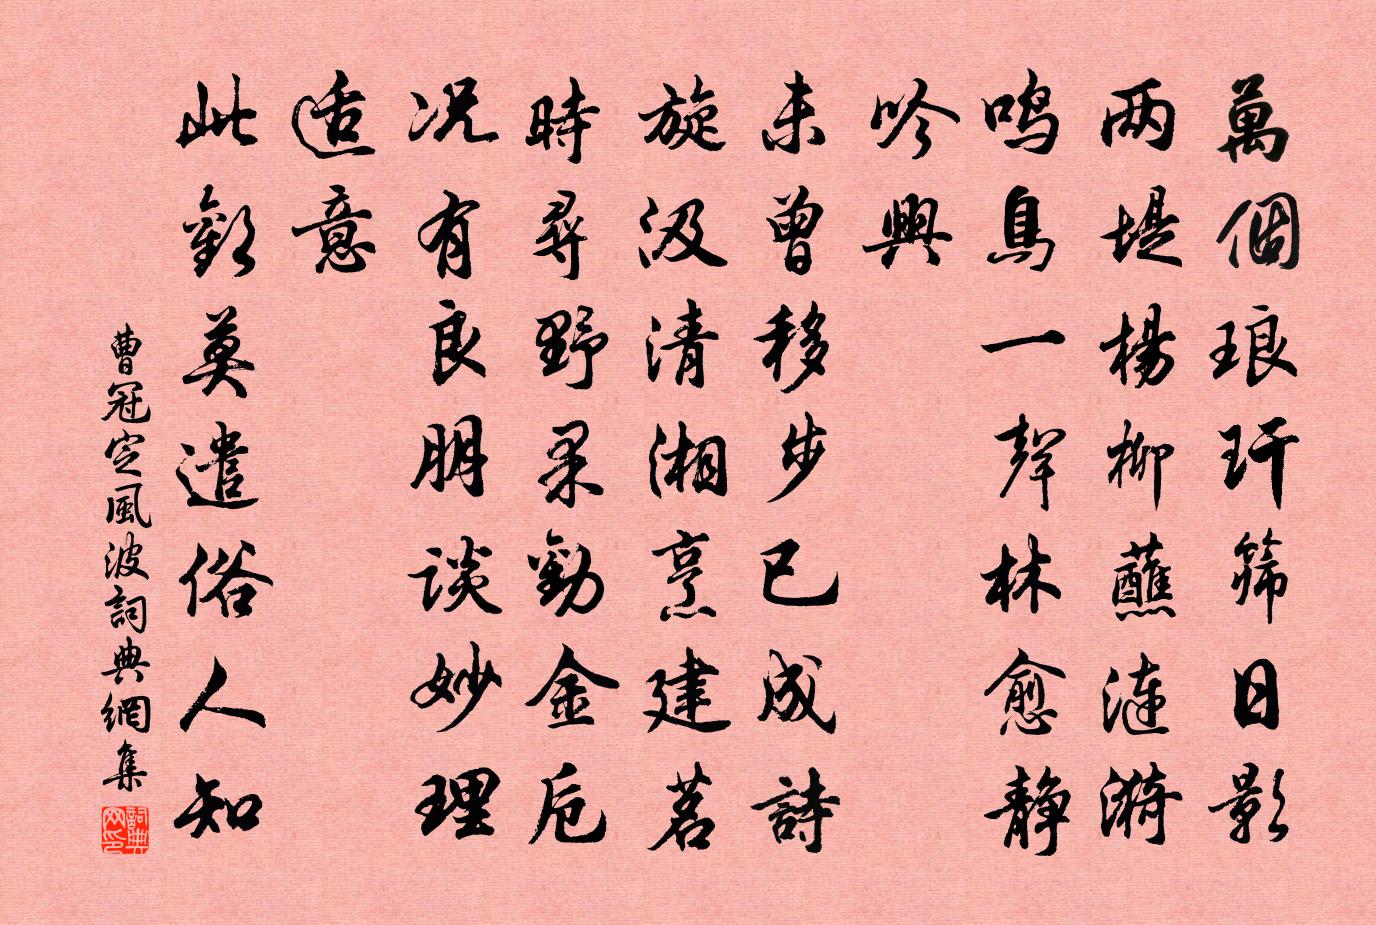 萬個琅玕篩日影
两堤楊柳蘸漣漪
鳴鳥一聲林愈静
吟興
未曾移步已成詩
旋汲清湘烹建茗
時尋野果勸金卮
况有良朋談妙理
适意
此歡莫遣俗人知
曹冠定風波詞典網集
詞典网印